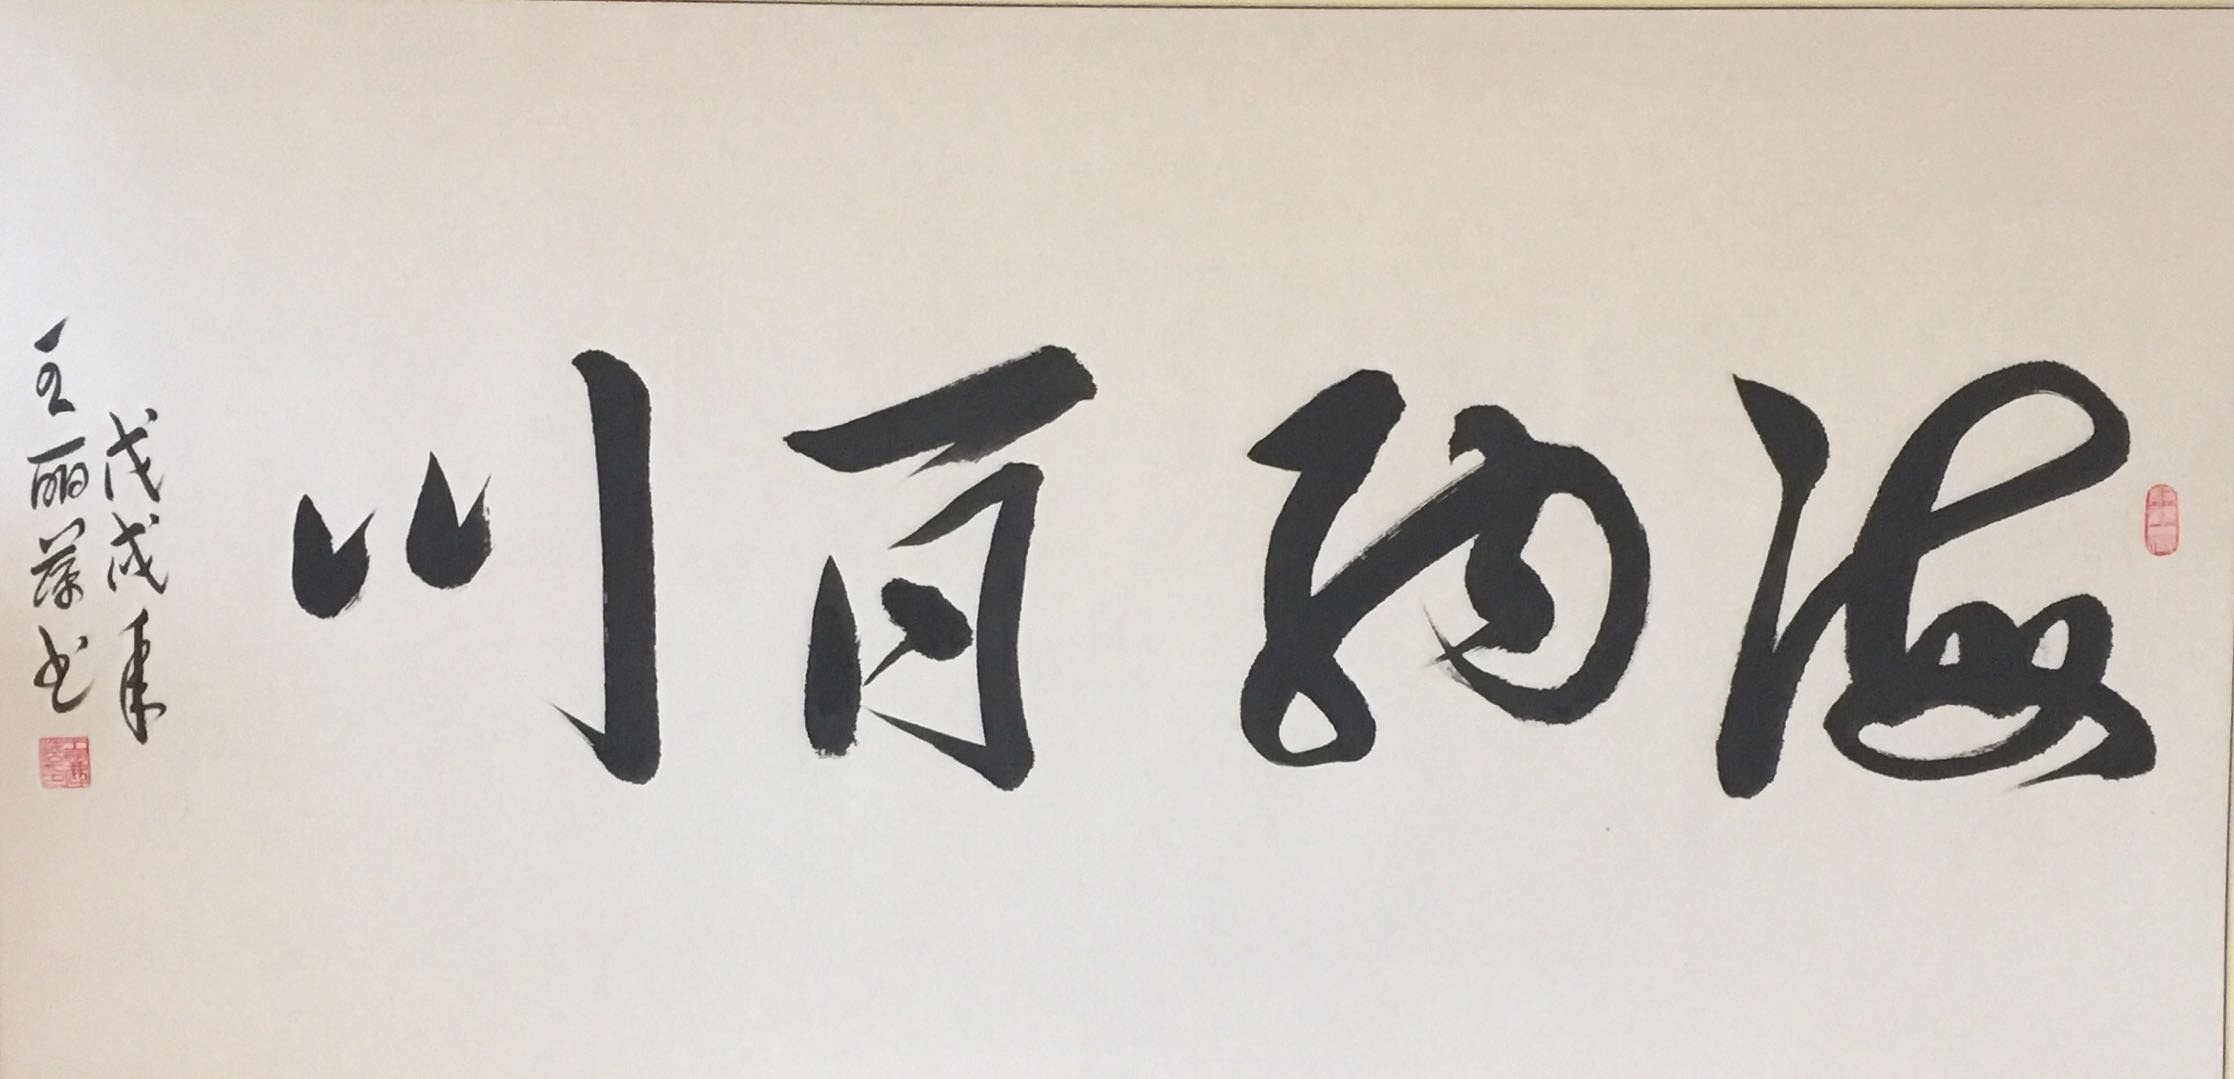 海纳百川
戊戌年
王丽萍书